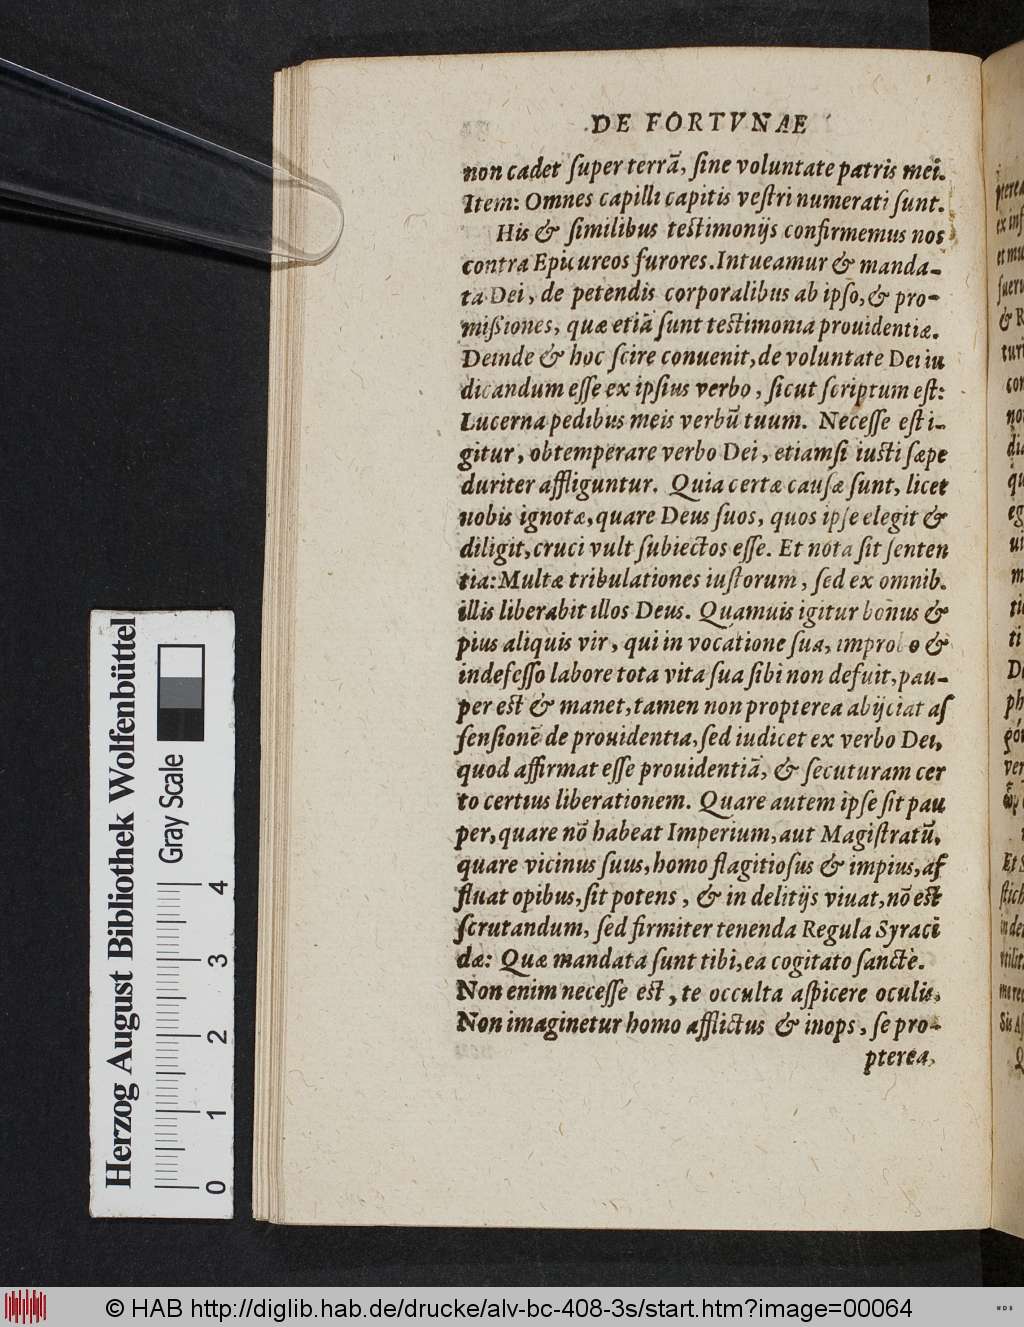 DE FORTVNAE
non cadet ſuper terrã, ſine voluntate patris mei.
Item: Omnes capilli capitis veſtri numerati ſunt.
His & ſimilibus teſtimonijs confirmemus nos
contra Epicureos furores. Intueamur & manda-
ta Dei, de petendis corporalibus ab ipſo, & pro-
miſsiones, quæ etiã ſunt teſtimonia prouidentiæ.
Deinde & hoc ſcire conuenit, de voluntate Dei iu
dicandum eſſe ex ipſius verbo, ſicut ſcriptum eſt:
Lucerna pedibus meis verbũ tuum. Neceſſe eſt i-
gitur, obtemperare verbo Dei, etiamſi iuſti ſæpe
duriter affliguntur. Quia certæ cauſæ ſunt, licet
nobis ignotæ, quare Deus ſuos, quos ipſe elegit &
diligit, cruci vult ſubiectos eſſe. Et nota ſit ſenten
tia: Multæ tribulationes iuſtorum, ſed ex omnib.
illis liberabit illos Deus. Quamuis igitur bonus &
pius aliquis vir, qui in vocatione ſua, improbo &
indefeſſo labore tota vita ſua ſibi non defuit, pau-
per eſt & manet, tamen non propterea abijciat aſ
ſenſionē de prouidentia, ſed iudicet ex verbo Dei,
quod affirmat eſſe prouidentiã, & ſecuturam cer
to certius liberationem. Quare autem ipſe ſit pau
per, quare nõ habeat Imperium, aut Magiſtratũ,
quare vicinus ſuus, homo flagitioſus & impius, af
fluat opibus, ſit potens, & in delitijs viuat, nõ eſt
ſcrutandum, ſed firmiter tenenda Regula Syraci
dæ: Quæ mandata ſunt tibi, ea cogitato ſanctè.
Non enim neceſſe eſt, te occulta aſpicere oculis.
Non imaginetur homo afflictus & inops, ſe pro-
pterea,
Herzog August Bibliothek Wolfenbüttel
Gray Scale
0 1 2 3 4
© HAB http://diglib.hab.de/drucke/alv-bc-408-3s/start.htm?image=00064